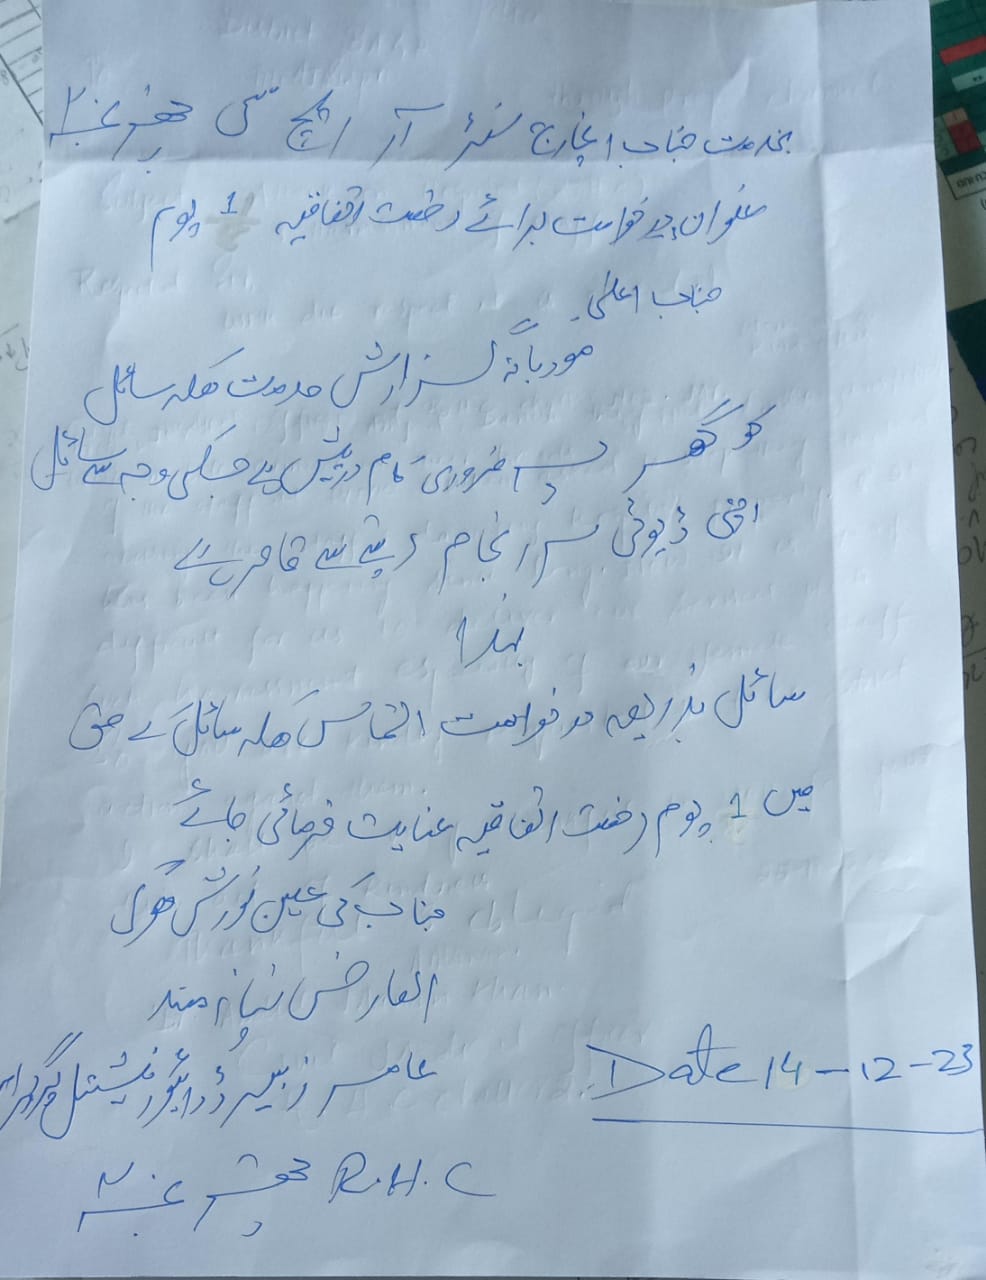 بخدمت جناب انچارج سنٹر آر ایچ سی
عنوان درخواست برائے رخصت اتفاقیہ 1 یوم
جناب اعلیٰ۔
مودبانہ گزارش خدمت ھیکہ سائل
کو گھر پہ ضروری کام درپیش ہے جسکی وجہ سے سائل
اپنی ڈیوٹی سرانجام دینے سے قاصر ہے
لہذا
سائل بذریعہ درخواست التماس ھیکہ سائل کے حق
میں 1 یوم رخصت اتفاقیہ عنایت فرمائی جائے
جناب کی عین نوازش ھوگی
العارض نیاز مند
عامر زبیر ڈرائیور نیشنل پروگرام
Date 14-12-23
R.H.C